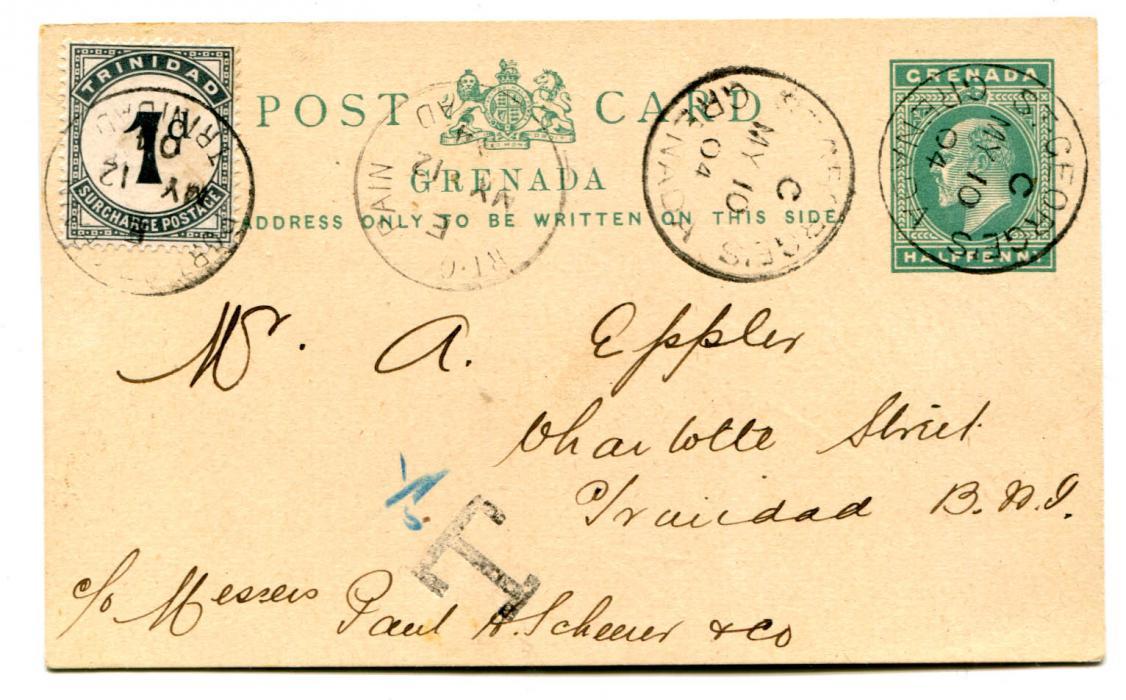 TRINIDAD
1D
SURCHARGE POSTAGE
POST CARD
GRENADA
ADDRESS ONLY TO BE WRITTEN ON THIS SIDE.
GRENADA
HALFPENNY
TRINIDAD
MY 12
E
MY 12
E
ST. GEORGE'S
C
MY 10
04
GRENADA
ST. GEORGE'S
C
MY 10
04
GRENADA
Mr. A. Eppler
Charlotte Street
Trinidad B.W.I.
T
c/o Messers Paul H. Scheerer & Co